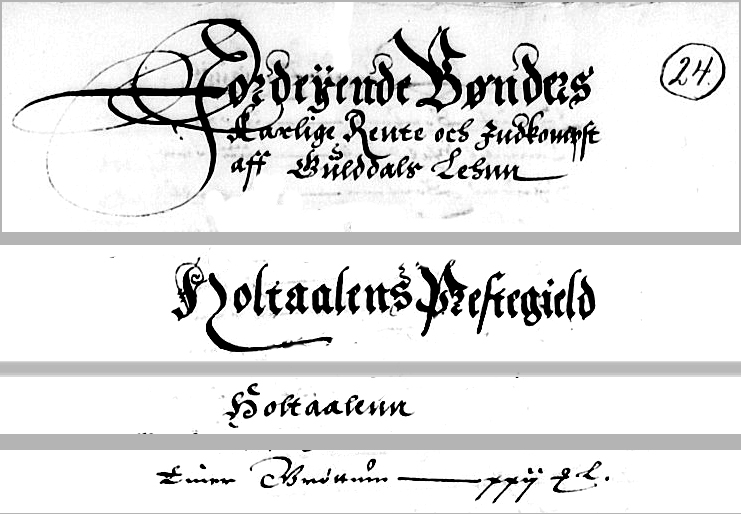 Jordeÿende Bønders
24.
Aarlige Rente och Indkompst
aff Gulddals Lehnn
Holtaalens Prestegield
Holtaalenn
Einer — xxij